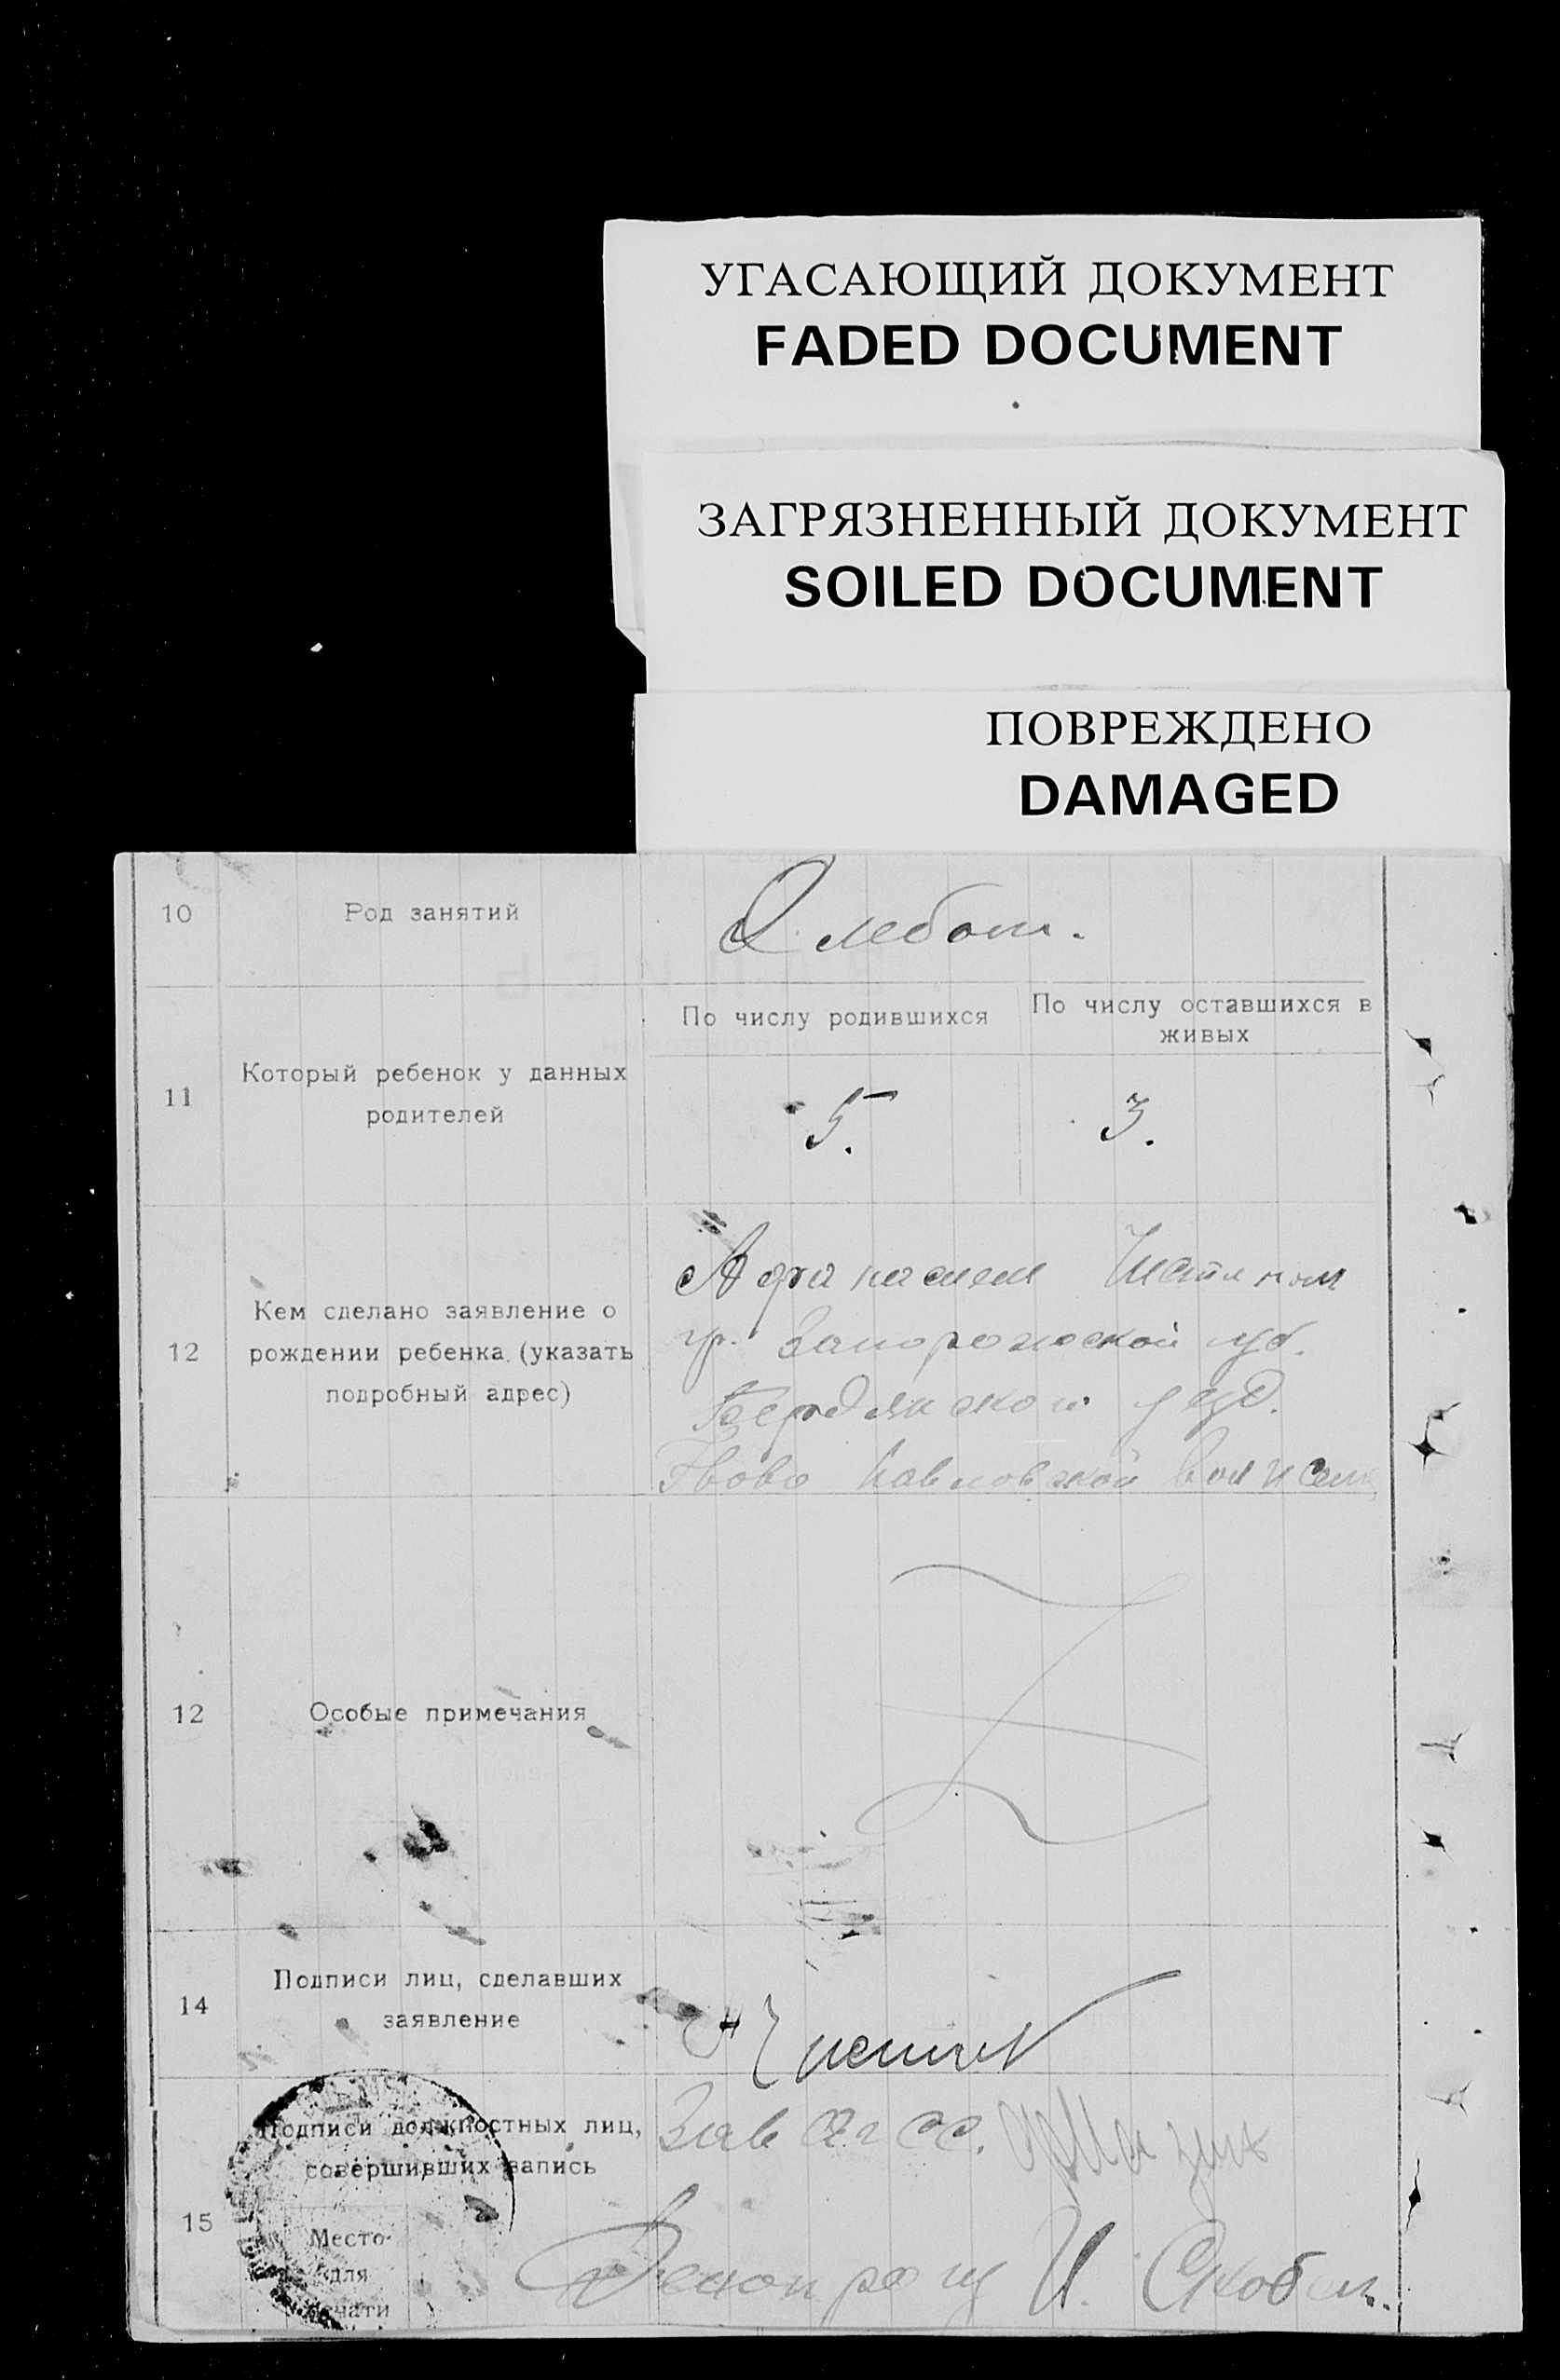 УГАСАЮЩИЙ ДОКУМЕНТ
FADED DOCUMENT
ЗАГРЯЗНЕННЫЙ ДОКУМЕНТ
SOILED DOCUMENT
ПОВРЕЖДЕНО
DAMAGED
10 Род занятий
Хлебоп.
11 Который ребенок у данных
родителей
По числу родившихся
5.
По числу оставшихся в
живых
3.
12 Кем сделано заявление о
рождении ребенка (указать
подробный адрес)
гр. Запорожской губ.
Бердянского уезд.
Ново Павловской Вол и села
12 Особые примечания
14 Подписи лиц, сделавших
заявление
15 Подписи должностных лиц,
совершивших запись
Зав
Место
для
печати
Делопроиз И. Скоб